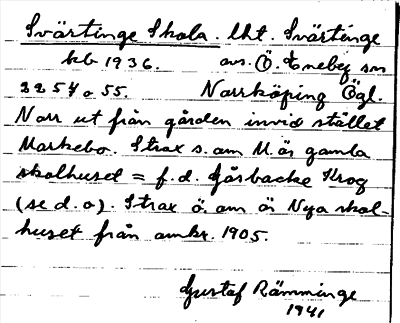 Svärtinge Skola. lht. Svärtinge
kb 1936. avs. Ö. Eneby sn
2254 o 55. Norrköping Ögl.
Norr ut från gården invid stället
Markebo. Strax s. om M. är gamla
skolhuset = f.d. Gåsbacke Krog
(se d.o). Strax ö. om är Nya skol-
huset från omkr. 1905.
Gustaf Rämminge
1941